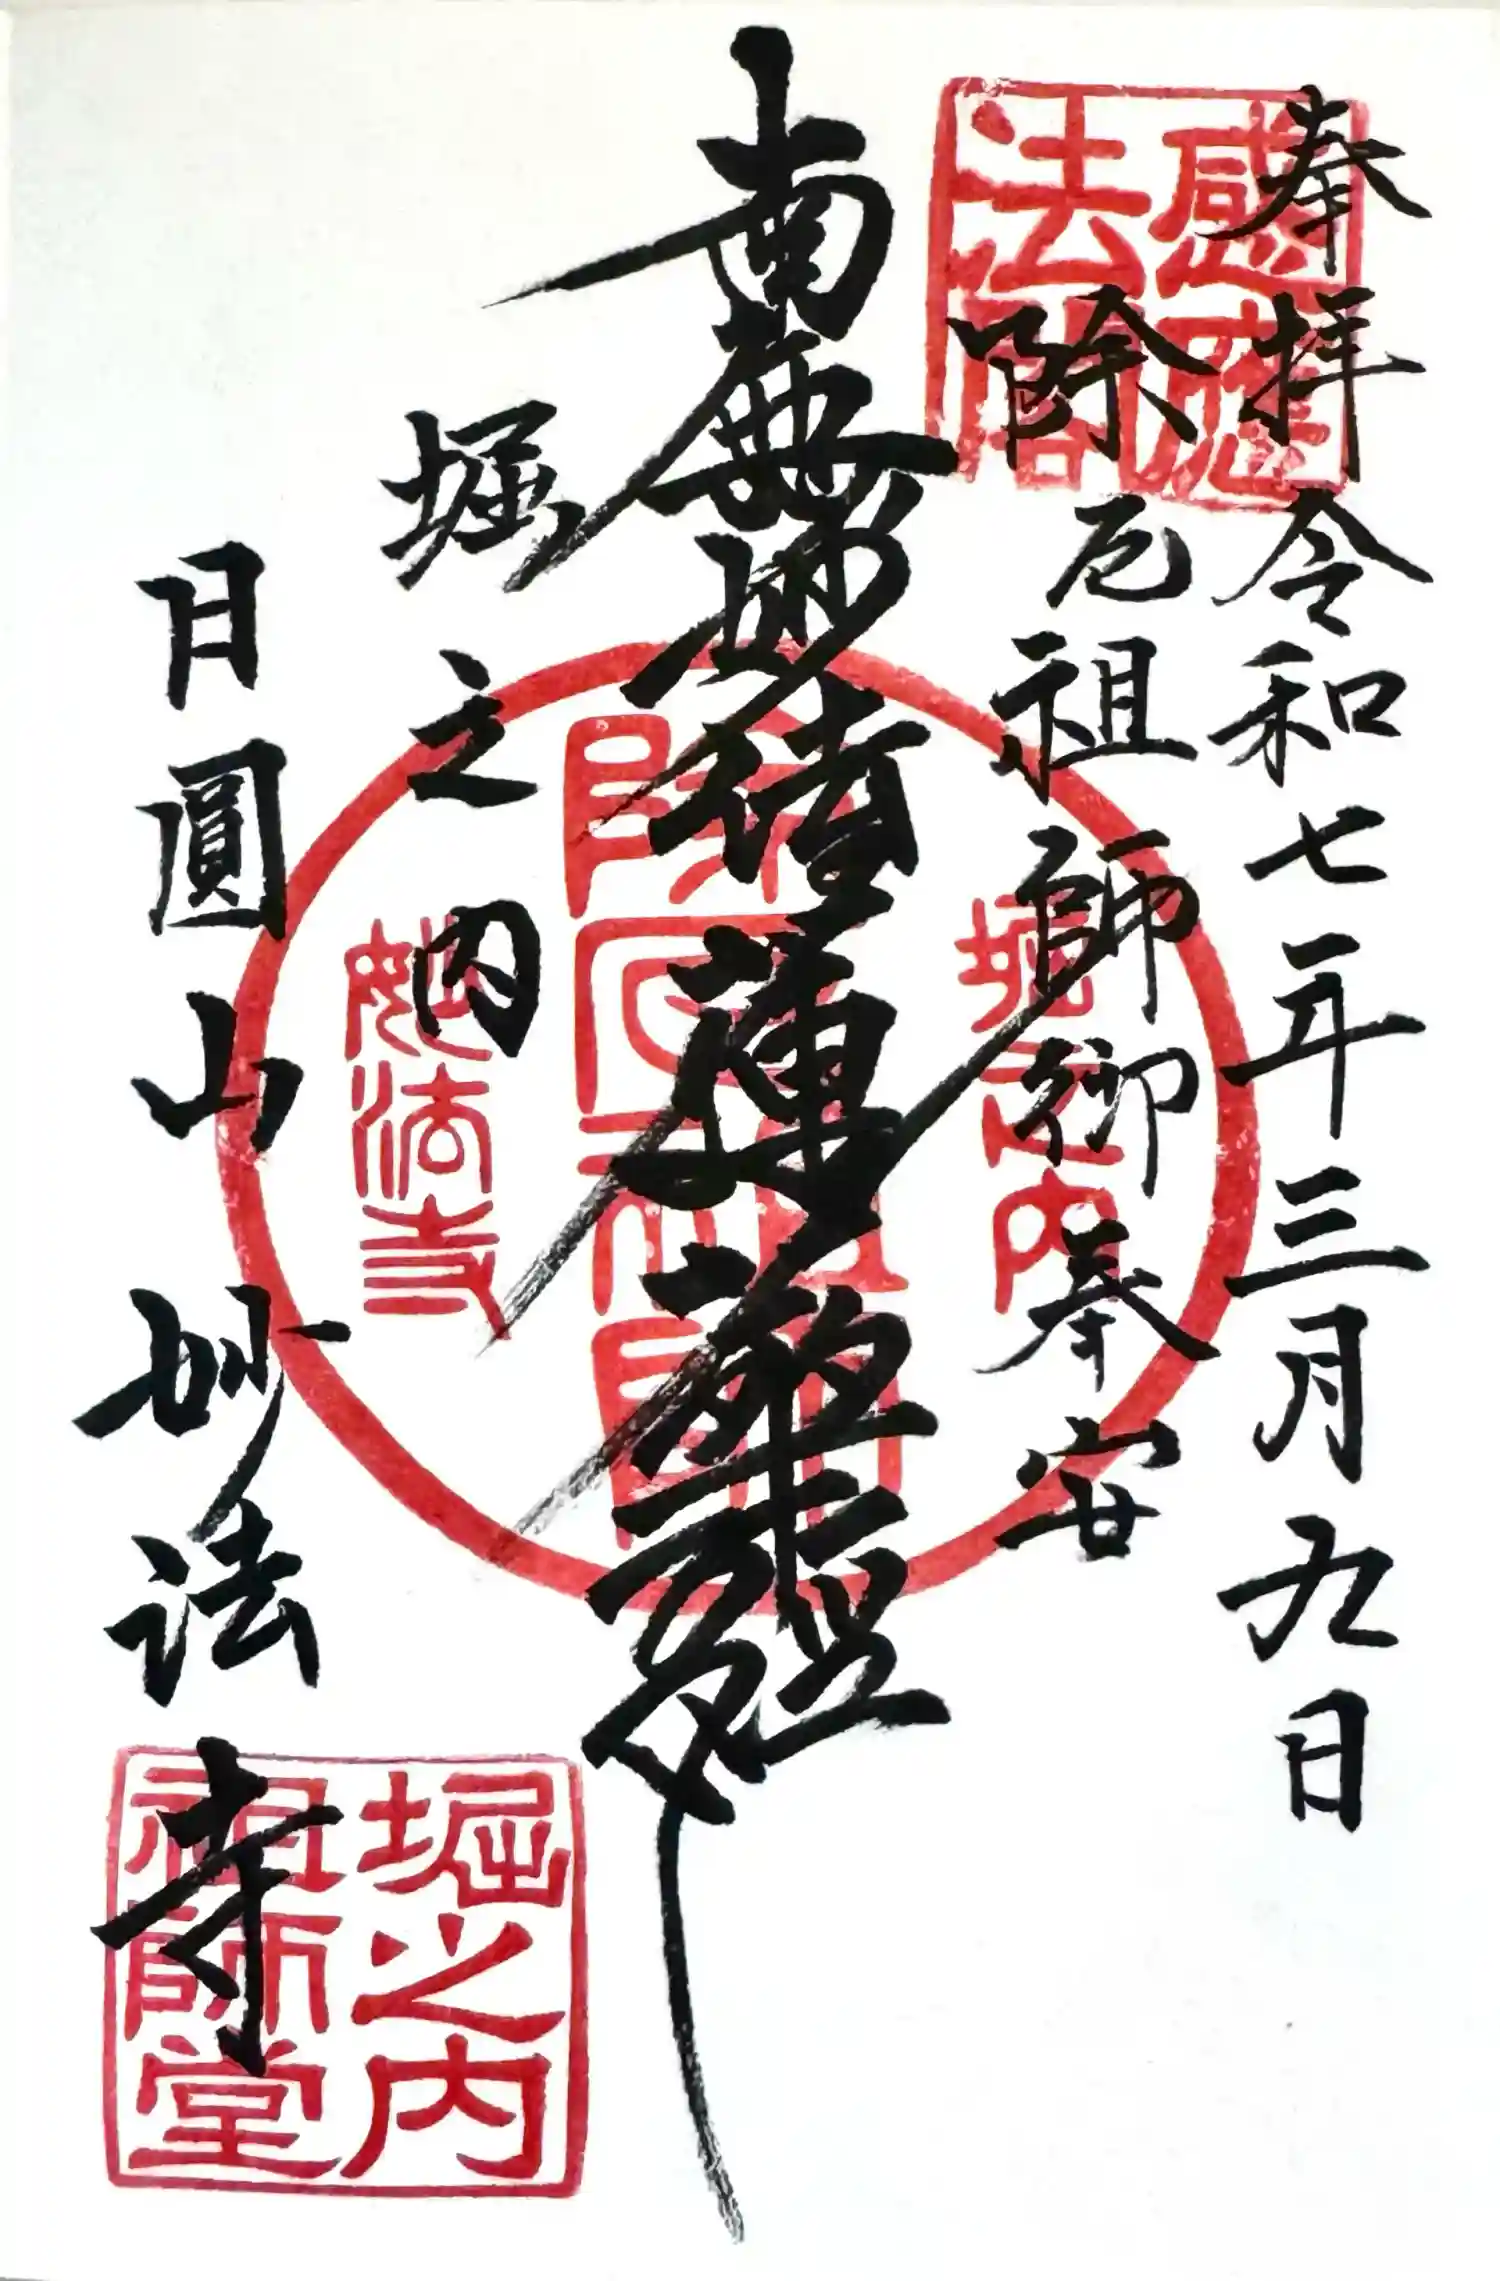 奉拝 令和七年三月九日
除厄祖師御奉安
南無妙法蓮華経
堀之内
日圓山 妙法寺
感應法閣
堀之内
除厄祖師
妙法寺
堀之内
祖師堂